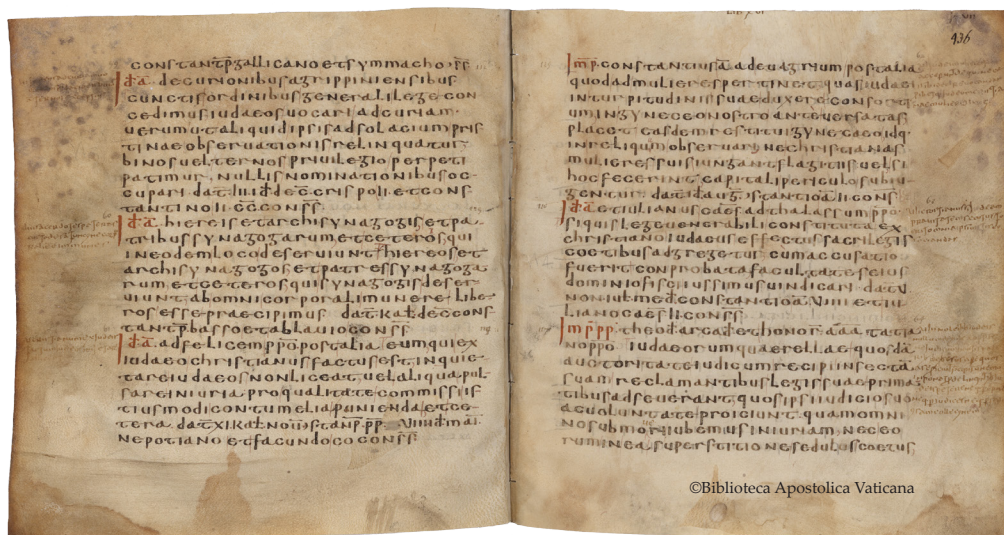 constantp gallicano et symmacho ss
Id a decurionibus agrippiniensibus
cunctis ordinibus generali lege con
cedimus iudaeos uocari ad curiam
uerum ut aliquid ipsis ad solacium pris
tinae obseruationis relinquatur
binos uel ternos priuilegio perpeti
patimur nullis nominationibus oc
cupari dat III id dec crispo II et cons
tantino II cc conss
Id a hiereis et archisynagogis et pa
tribus synagogarum et ceteros qui
in eodem loco deseruiunt hiereos et
archisynagogos et patres synagoga
rum et ceteros qui synagogis deser
uiunt ab omni corporali munere libe
ros esse praecipimus dat kal dec cons
tantp basso et ablauio conss
Id a ad felicem ppo post alia eum qui ex
iudaeo christianus factus est inquie
tare iudaeos non liceat uel aliqua pul
sare iniuria pro qualitate commissi is
tiusmodi contumelia punienda et ce
tera dat XI kal nou constanp pp VIII id mai
nepotiano et facundo conss
436
Imp constantius a ad euagrium post alia
quod ad mulieres pertinet quas iudaei
in turpitudinis suae duxere consorti
um in gyneceo nostro ante uersatas
placet easdem restitui gyneceo idq
in reliqum obseruari ne christianas
mulieres suis iungant flagitiis uel si
hoc fecerint capitali periculo subiu
gentur dat id aug constantio a II cons
Id a et iulianus caes ad thalassum ppo
si quis lege uenerabili constituta ex
christiano iudaeus effectus sacrilegis
coetibus adgregetur cum accusatio
fuerit conprobata facultates eius
dominio fisci iussimus uindicari dat V
non iul med constantio a VIIII et iu
liano caes II conss
Imp pp theod arcad et honor aaa tatia
no ppo iudaeorum querellae quosda
auctoritate iudicum recipi in secta
suam reclamantibus legis suae prima
tibus adseuerant quos ipsi iudicio suo
ac uoluntate proiciunt quam omni
no submoueri iubemus iniuriam nec eo
rum in ea superstitione sedulus coetus
©Biblioteca Apostolica Vaticana